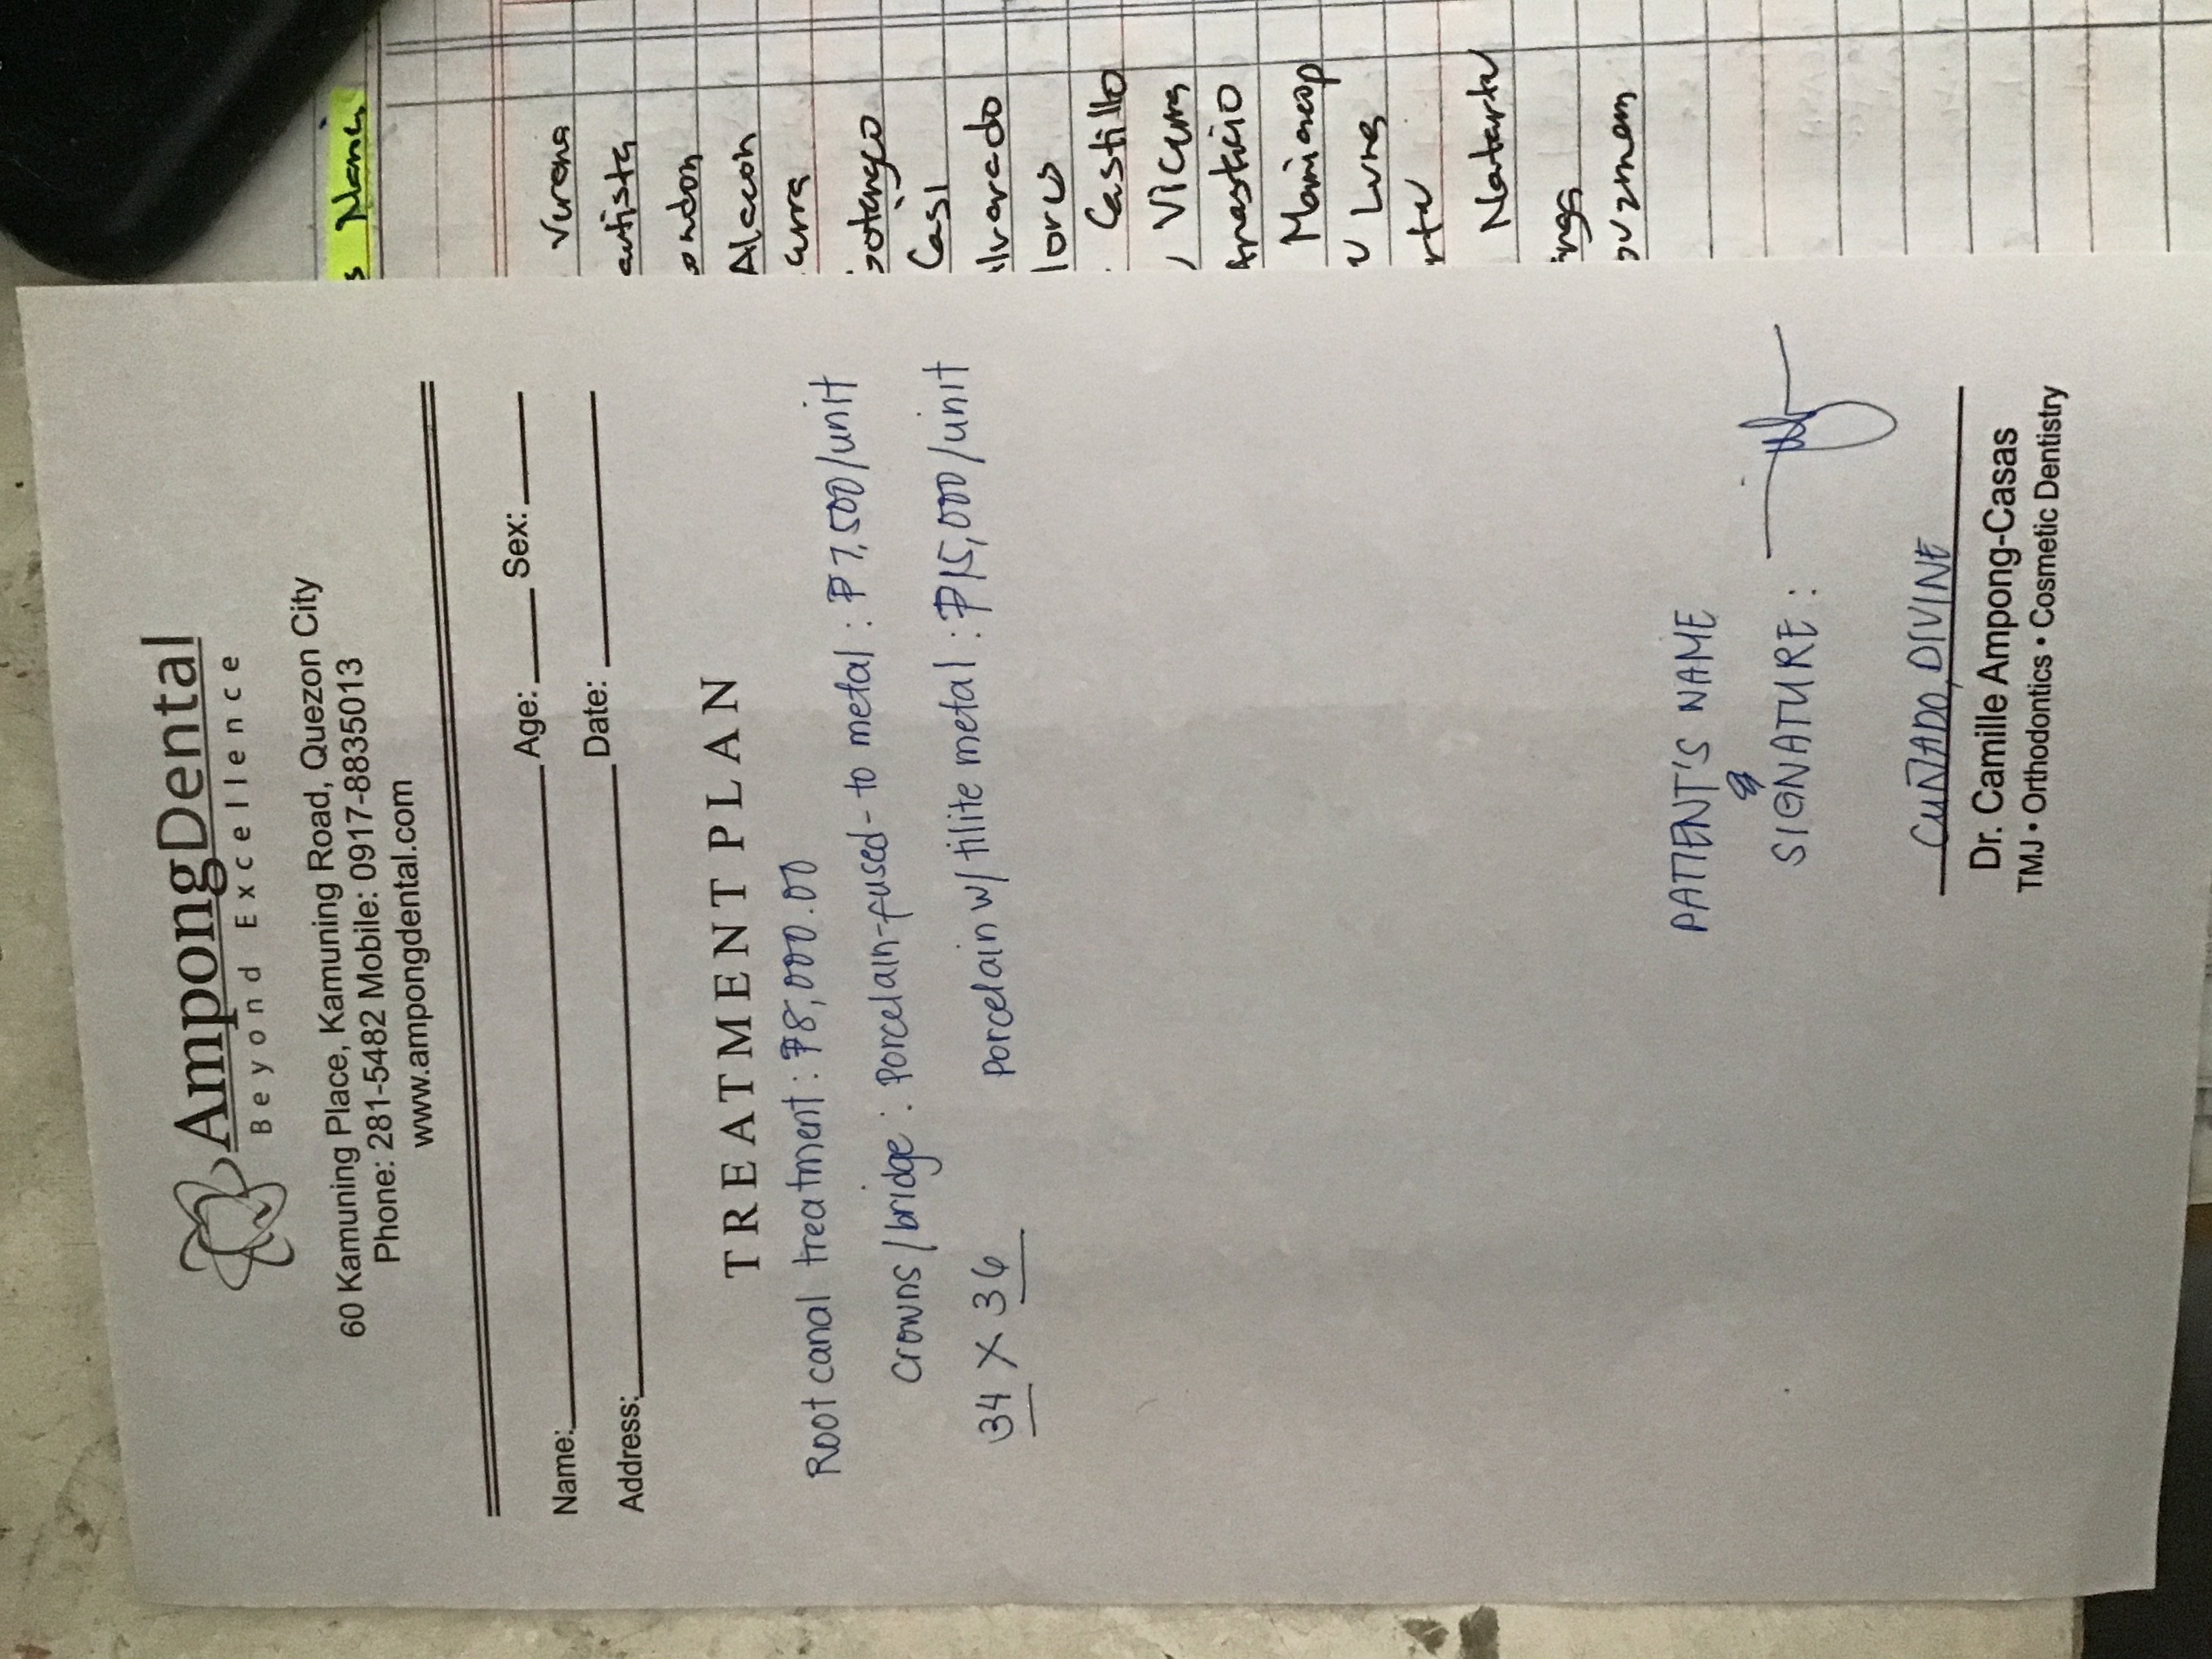 AmpongDental
Beyond Excellence
60 Kamuning Place, Kamuning Road, Quezon City
Phone: 281-5482 Mobile: 0917-8835013
www.ampongdental.com
Name: Age: Sex:
Address: Date:
TREATMENT PLAN
Root canal treatment : ₱8,000.00
Crowns/bridge : Porcelain-fused-to metal : ₱7,500/unit
34 X 36 Porcelain w/ tilite metal : ₱15,000/unit
PATIENT'S NAME
&
SIGNATURE :
CUÑADO, DIVINE
Dr. Camille Ampong-Casas
TMJ • Orthodontics • Cosmetic Dentistry
Alacon
Casi
Castillo
Vicuna
Luna